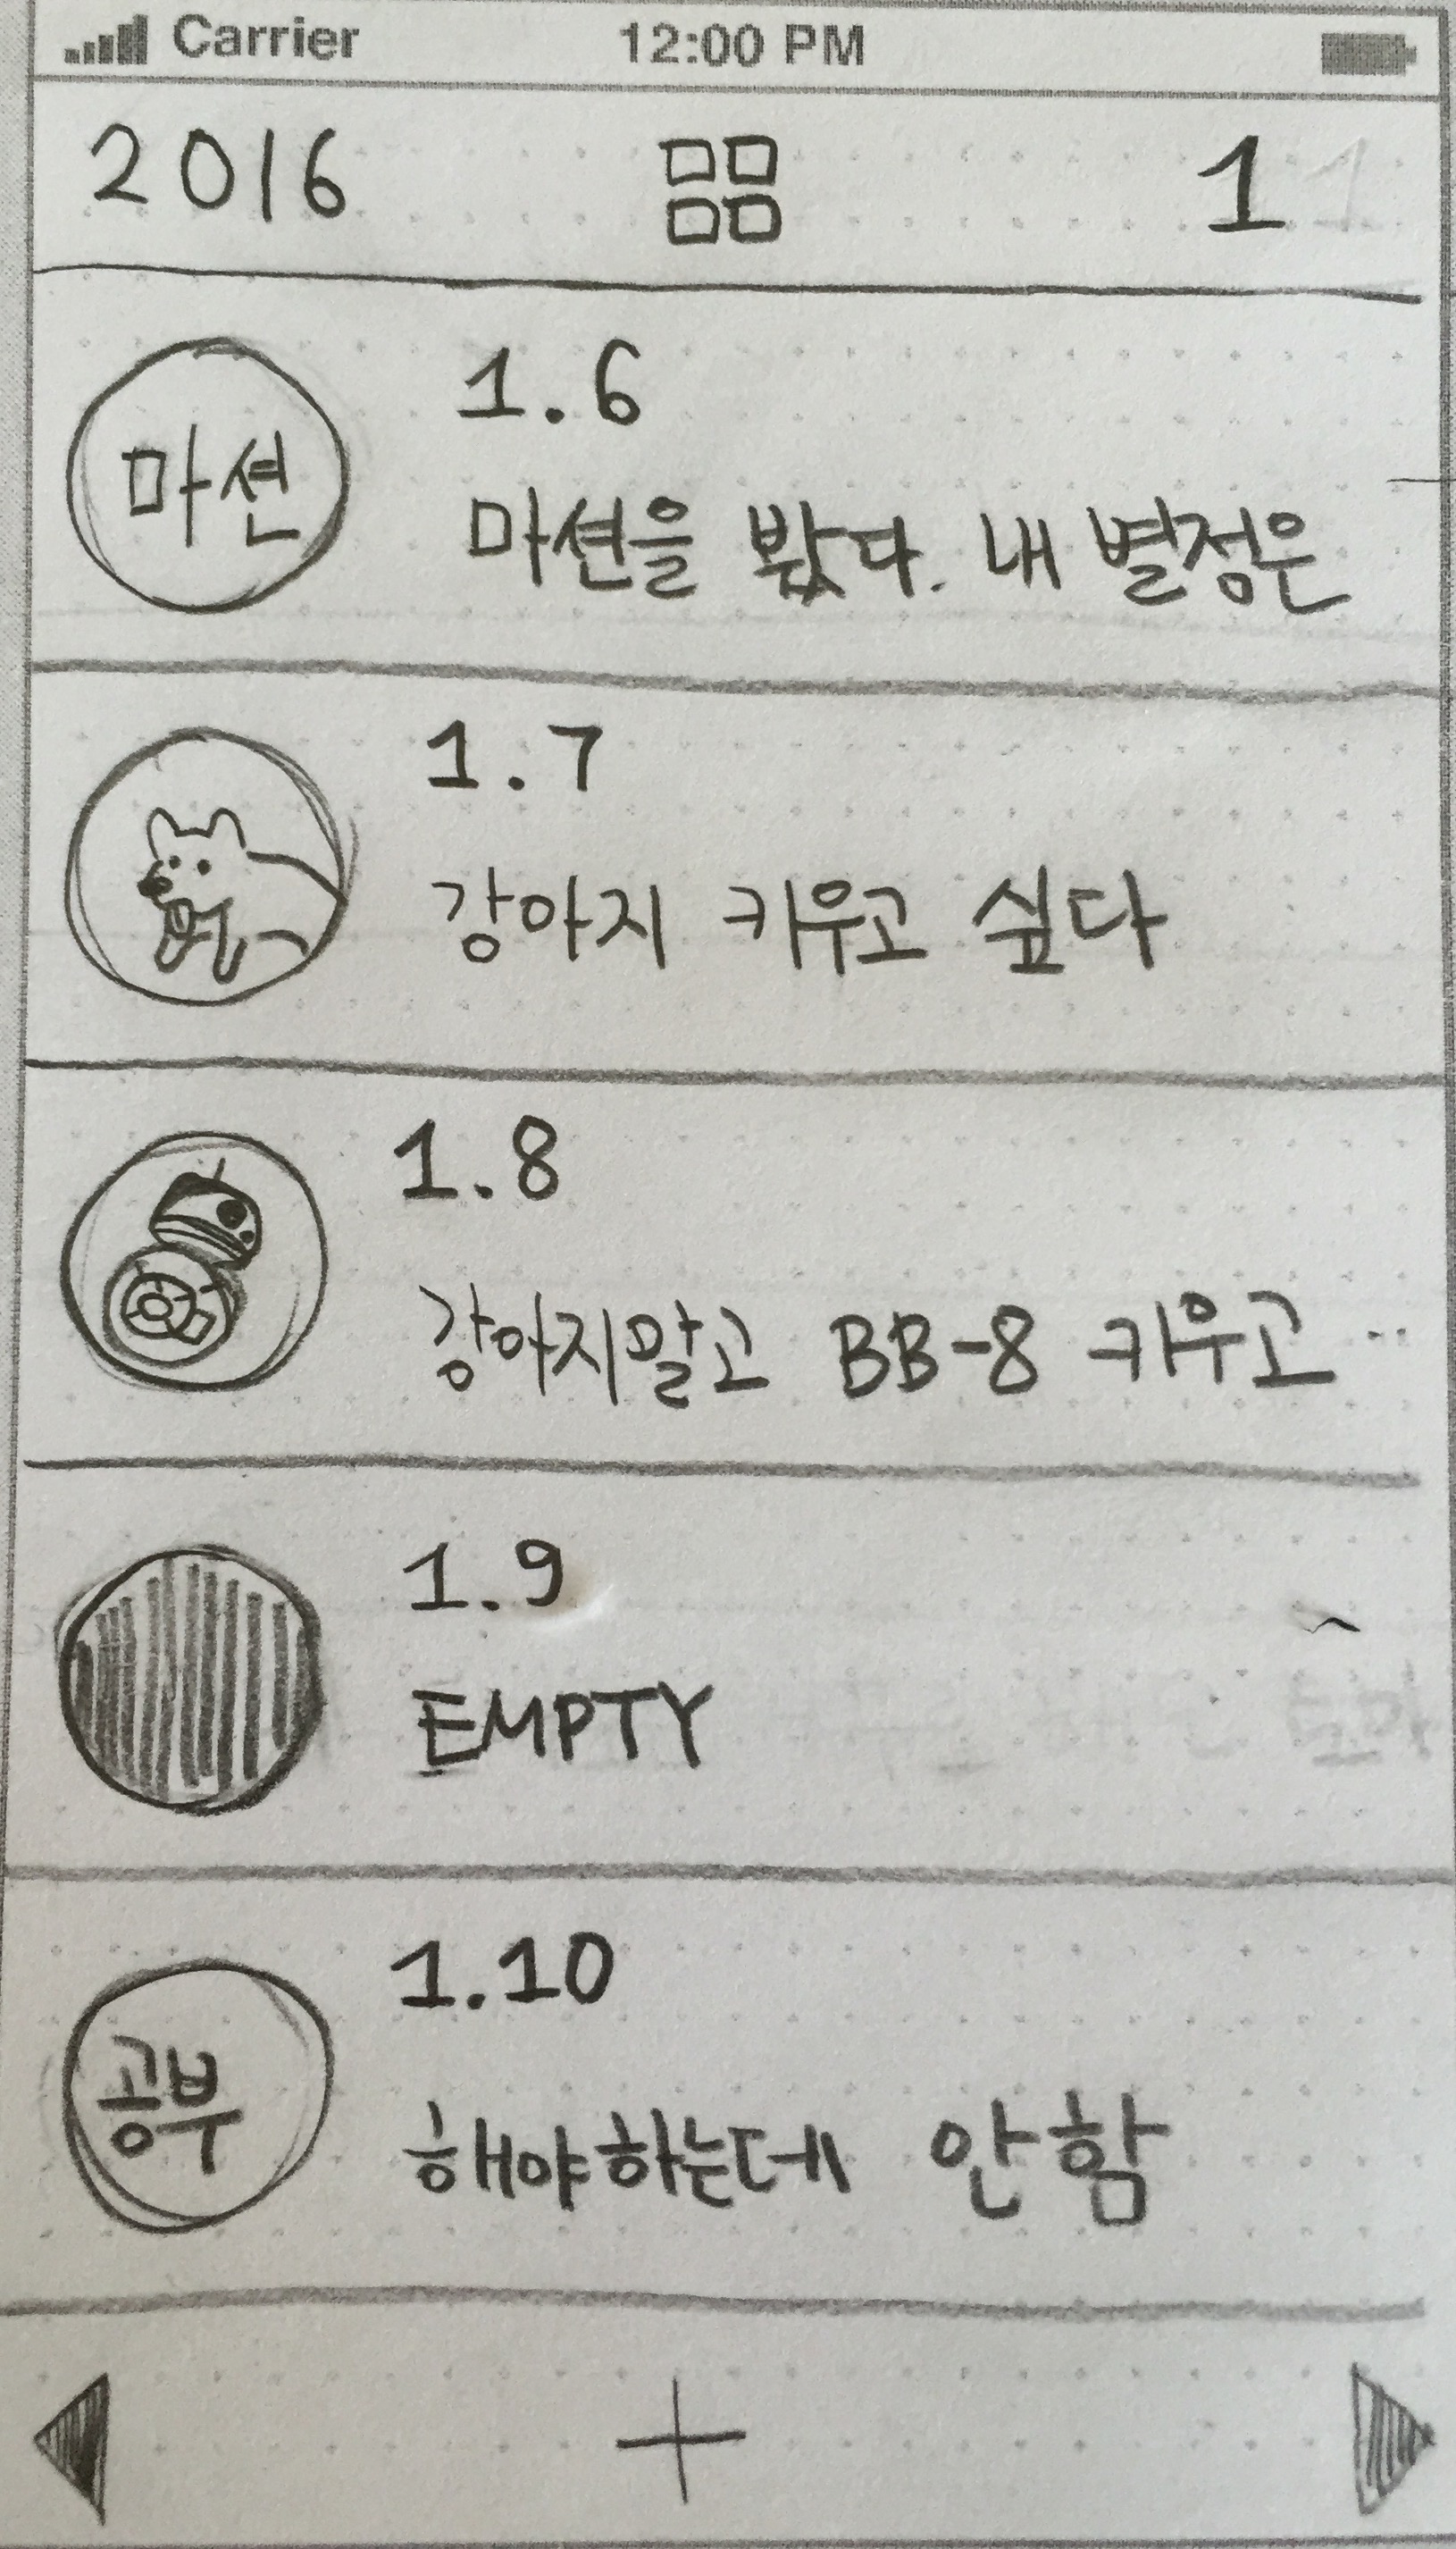 Carrier 12:00 PM
2016 1
마션
1.6
마션을 봤다. 내 별점은
1.7
강아지 키우고 싶다
1.8
강아지말고 BB-8 키우고 ..
1.9
EMPTY
공부
1.10
해야하는데 안함